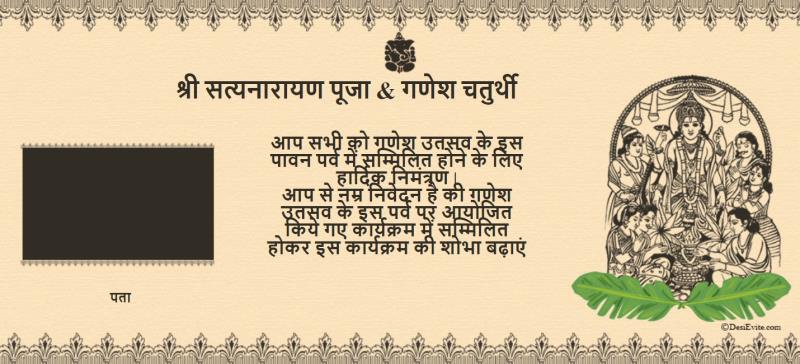 श्री सत्यनारायण पूजा & गणेश चतुर्थी
आप सभी को गणेश उतसव के इस
पावन पर्व में सम्मिलित होने के लिए
हार्दिक निमंत्रण |
आप से नम्र निवेदन है की गणेश
उतसव के इस पर्व पर आयोजित
किये गए कार्यक्रम में सम्मिलित
होकर इस कार्यक्रम की शोभा बढ़ाएं
पता
©DesiEvite.com